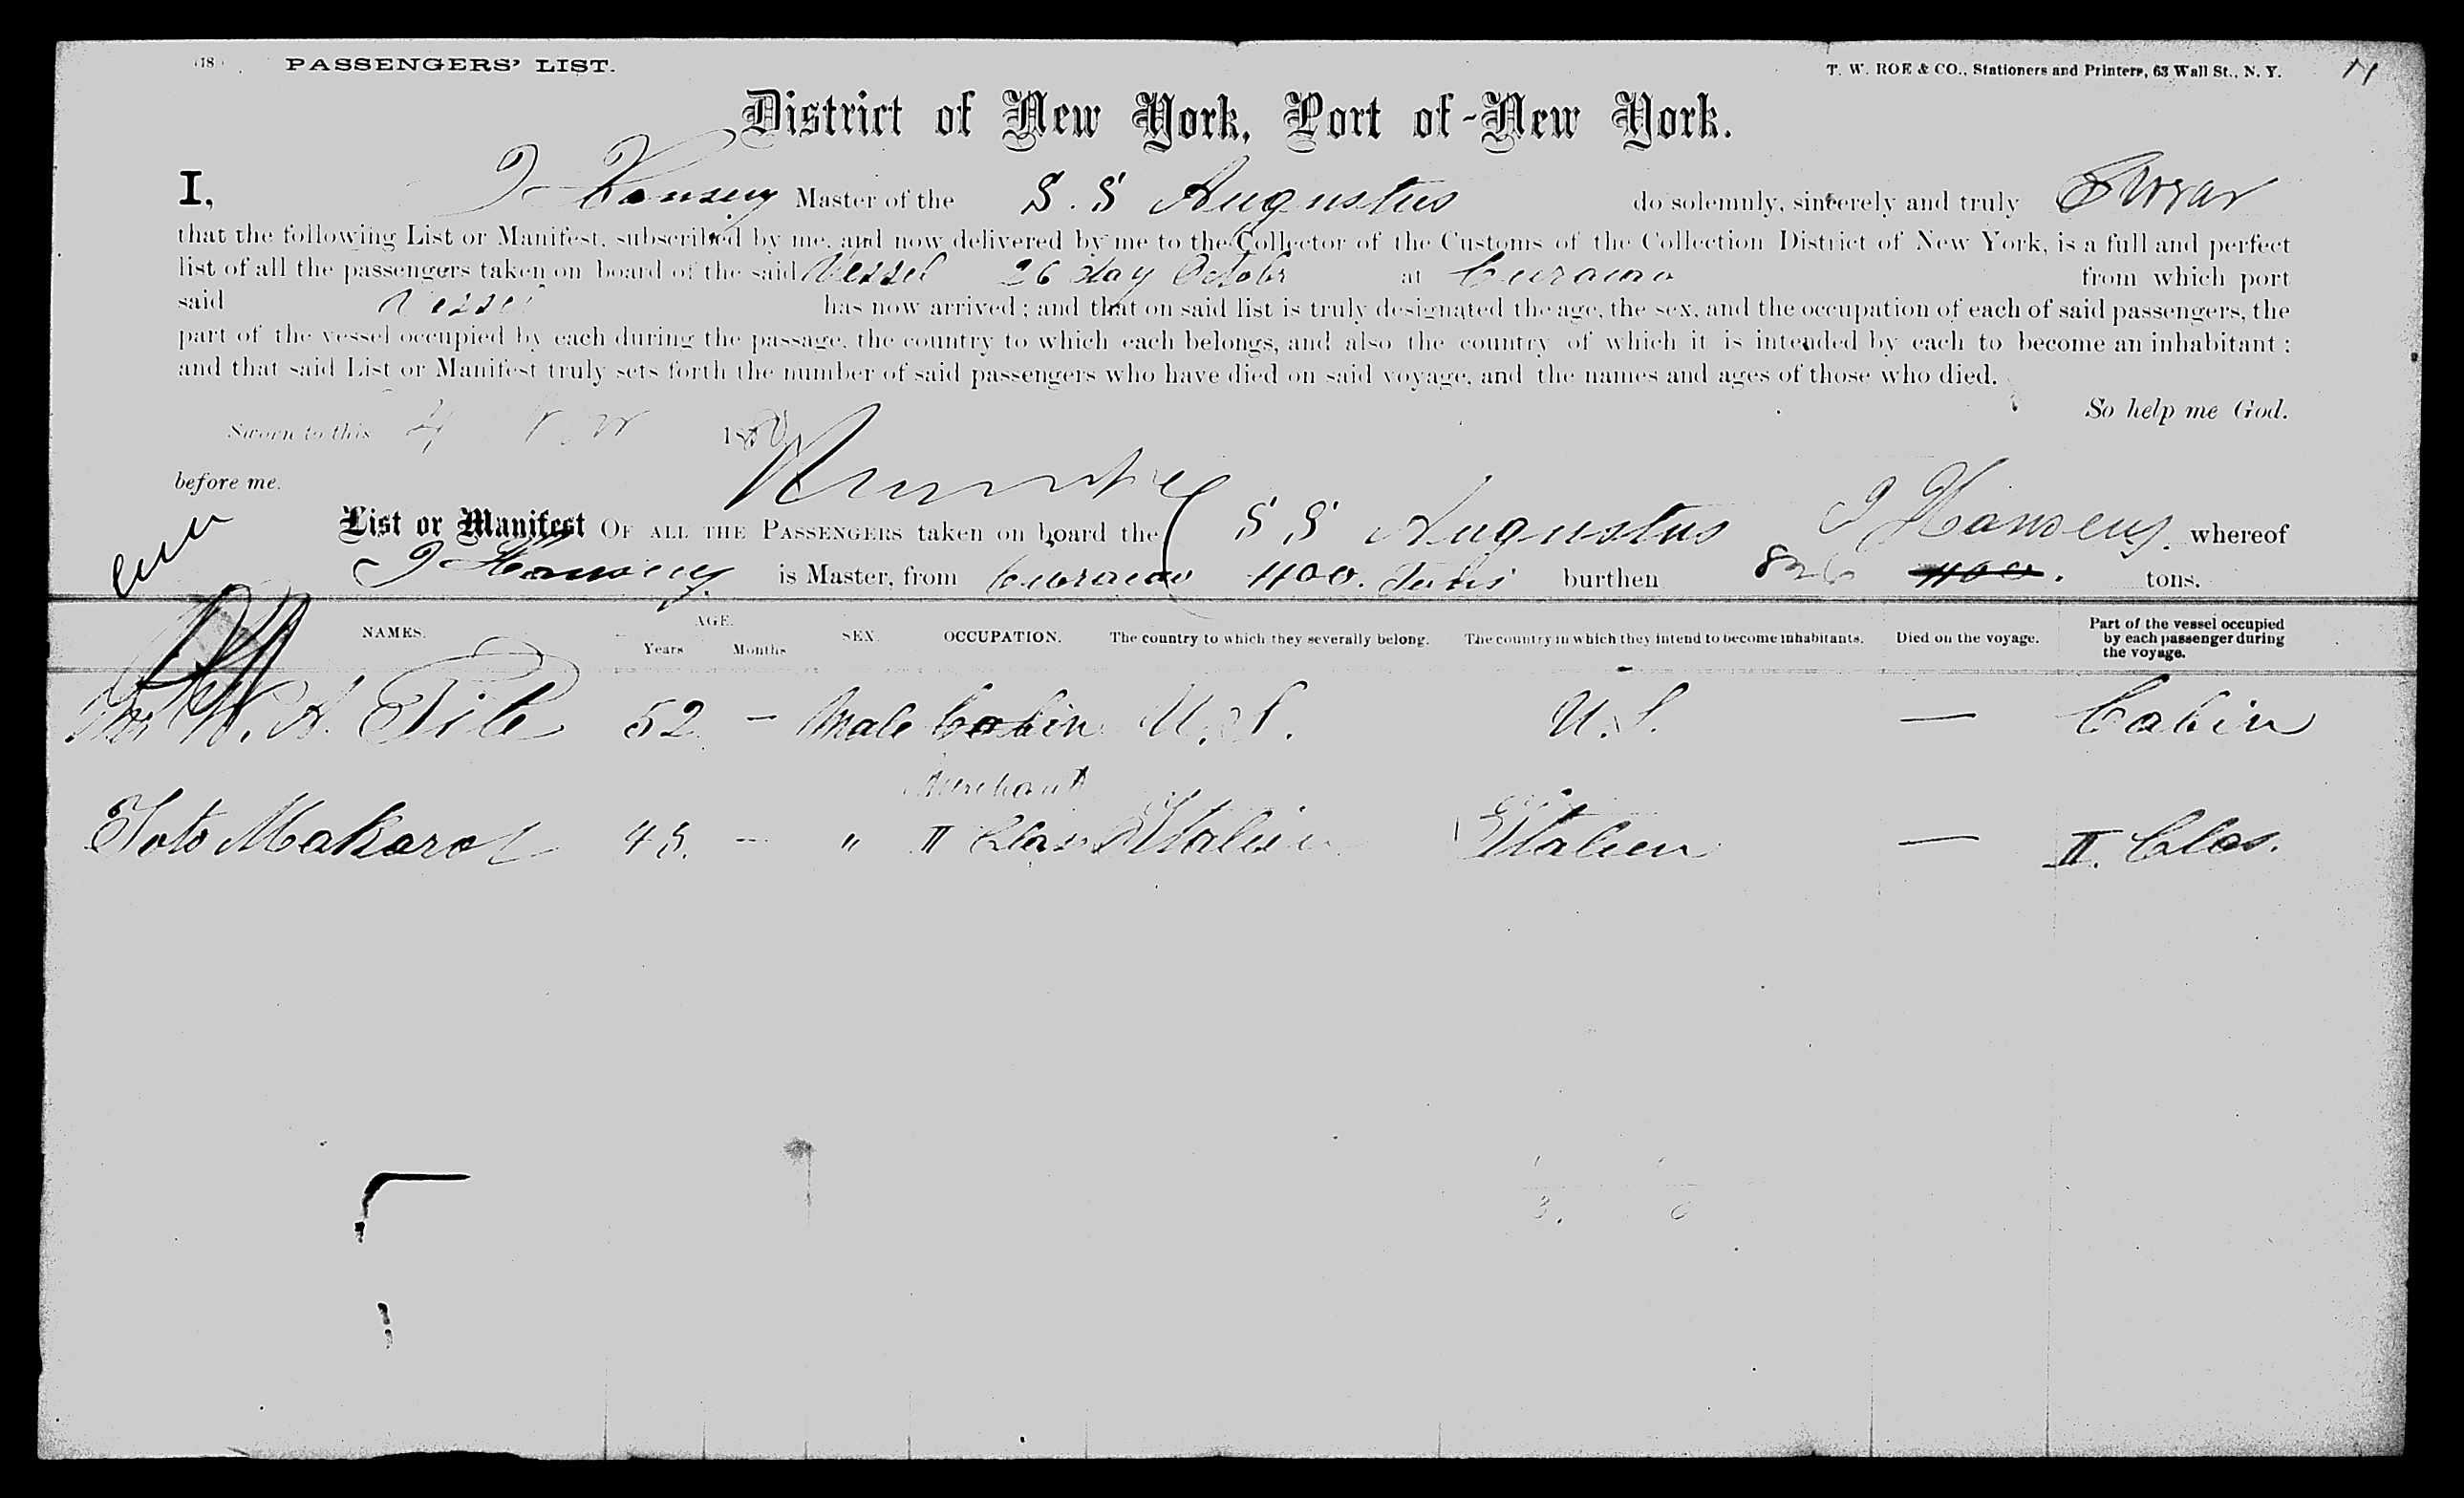 PASSENGERS' LIST.
T. W. ROE & CO., Stationers and Printers, 63 Wall St., N. Y.
District of New York, Port of New York.
I, Master of the S. S Augustus do solemnly, sincerely and truly Swear
that the following List or Manifest, subscribed by me, and now delivered by me to the Collector of the Customs of the Collection District of New York, is a full and perfect
list of all the passengers taken on board of the said Vessel 26 day Octobr at Curacao from which port
said Vessel has now arrived; and that on said list is truly designated the age, the sex, and the occupation of each of said passengers, the
part of the vessel occupied by each during the passage, the country to which each belongs, and also the country of which it is intended by each to become an inhabitant;
and that said List or Manifest truly sets forth the number of said passengers who have died on said voyage, and the names and ages of those who died.
So help me God.
Sworn to this 4 Nov 18
before me.
List or Manifest OF ALL THE PASSENGERS taken on board the S S Augustus whereof
is Master, from Curacao 1100. Tons burthen 826 1100. tons.
NAMES. AGE. Years Months SEX. OCCUPATION. The country to which they severally belong. The country in which they intend to become inhabitants. Died on the voyage. Part of the vessel occupied by each passenger during the voyage.
W. A. Pile 52 — Male Cabin U. S. U. S. — Cabin
Merchant
Toto Makarol 43. — " II Clas Italien Italien — II. Clas.